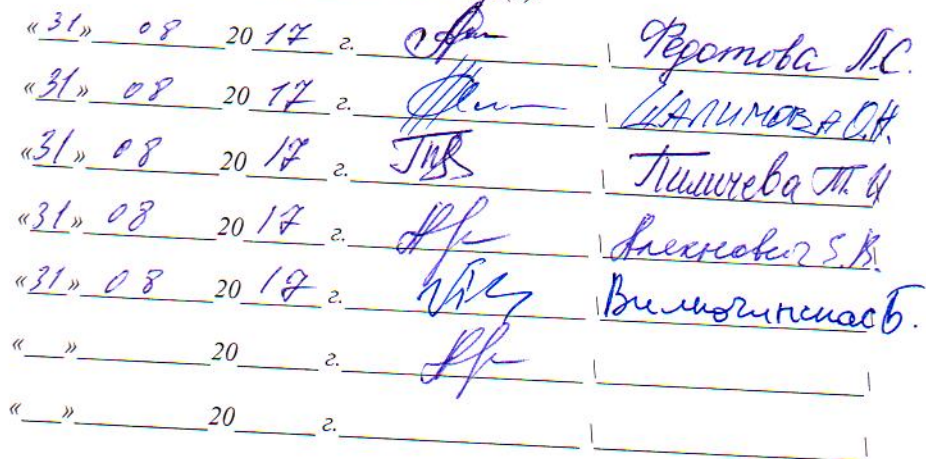 «31» 08 2017 г. | Федотова Л.С.
«31» 08 2017 г. | ЦАЛИМОВА О.Н.
«31» 08 2017 г. | Пиличева Т. И
«31» 08 2017 г. | Алехнович З.В.
«31» 08 2017 г.
«__» 20 г.
«__» 20 г.